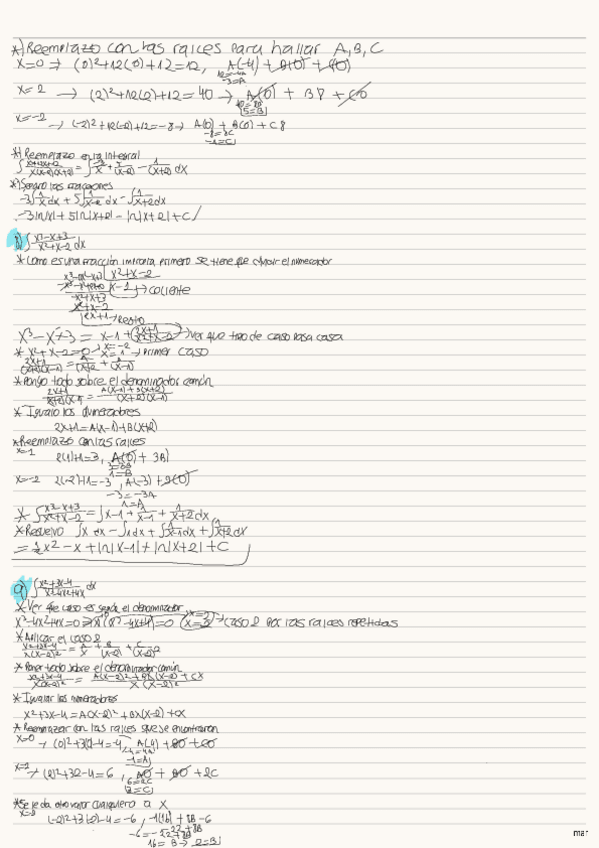 *) Reemplazo con las raices para hallar A, B, C
x=0 → (0)²+12(0)+12=12, A(-4) + B(0) + C(0)
12=-4A
-3=A
x=2 → (2)²+12(2)+12=40 → A(0) + B8 + C0
40=8B
5=B
x=-2 → (-2)²+12(-2)+12=-8 → A(0) + B(0) + C8
-8=8C
-1=C
*) Reemplazo en la integral
*) Separo las
-3∫1/x dx + 5∫1/x-2 dx - ∫1/x+2 dx
-3ln|x| + 5ln|x+2| - ln|x+2| + C
∫ x³-x+3/x²+x-2 dx
* Como es una fracción impropia primero se tiene que dividir el numerador
x²+x-2
x-1 → cociente
-x²+x+3
2x+1 → Resto
x³-x+3 = x-1 + → ver que tipo de caso
* x²+x-2=0 x=-2 x=1 → primer caso
* Pongo todo sobre el denominador común
* Igualo los numeradores
2x+1=A(x-1)+B(x+2)
* Reemplazo con las raices
x=1 2(1)+1=3, A(0) + 3B
3=3B
1=B
x=-2 2(-2)+1=-3, A(-3)+B(0)
-3=-3A
1=A
* ∫ x³-x+3/x²+x-2 = ∫x-1 + 1/x-1 + 1/x+2 dx
* Resuelvo ∫x dx - ∫1dx + ∫1/x-1 dx + ∫1/x+2 dx
= ½x² - x + ln|x-1| + ln|x+2| + C
9) ∫ x²+3x-4/x³-4x²+4x dx
* Ver que caso es según el denominador
x³-4x²+4x=0 → x(x²-4x+4)=0 x=2 → Caso 2 por las raices repetidas
* Aplicar el caso 2
* Poner todo sobre el denominador común
* Igualar los numeradores
x²+3x-4=A(x-2)²+Bx(x-2)+Cx
* Reemplazar con las raices que se encontraron
x=0 → (0)²+3(0)-4=-4, A(4) + B0 + C0
-4=4A
-1=A
x=2 → (2)²+32-4=6, A0 + B0 + 2C
6=2C
3=C
* Se le da otro valor cualquiera a x
x=-2 (-2)²+3(-2)-4=-6, -1(16) + 8B -6
-6=-22+8B
16= B → 2=B
mar